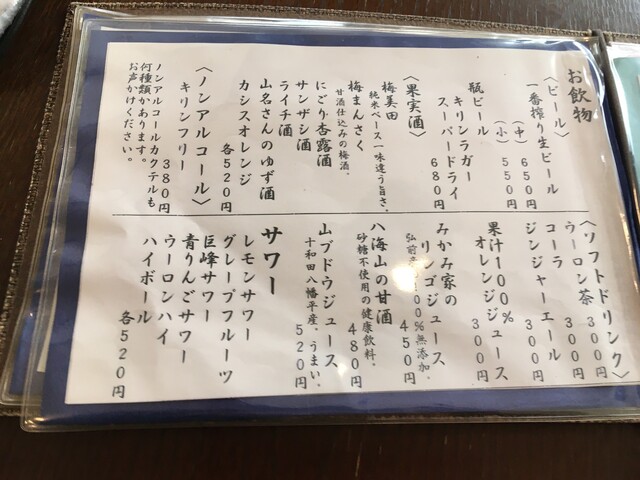 お飲物
〈ビール〉
一番搾り生ビール
（中）６５０円
（小）５５０円
瓶ビール
キリンラガー
スーパードライ
６８０円
〈果実酒〉
梅美田
純米ベース一味違う旨さ。
梅まんさく
甘酒仕込みの梅酒。
にごり杏露酒
サンザシ酒
ライチ酒
山名さんのゆず酒
カシスオレンジ
各５２０円
〈ノンアルコール〉
キリンフリー
３８０円
ノンアルコールカクテルも
何種類かあります。
お声かけください。
〈ソフトドリンク〉
ウーロン茶 ３００円
コーラ ３００円
ジンジャーエール
３００円
果汁１００％
オレンジジュース
３００円
みかみ家の
リンゴジュース
４５０円
弘前 ００％無添加。
八海山の甘酒
４８０円
砂糖不使用の健康飲料。
山ブドウジュース
５２０円
十和田八幡平産。うまい。
サワー
レモンサワー
グレープフルーツ
巨峰サワー
青りんごサワー
ウーロンハイ
ハイボール
各５２０円